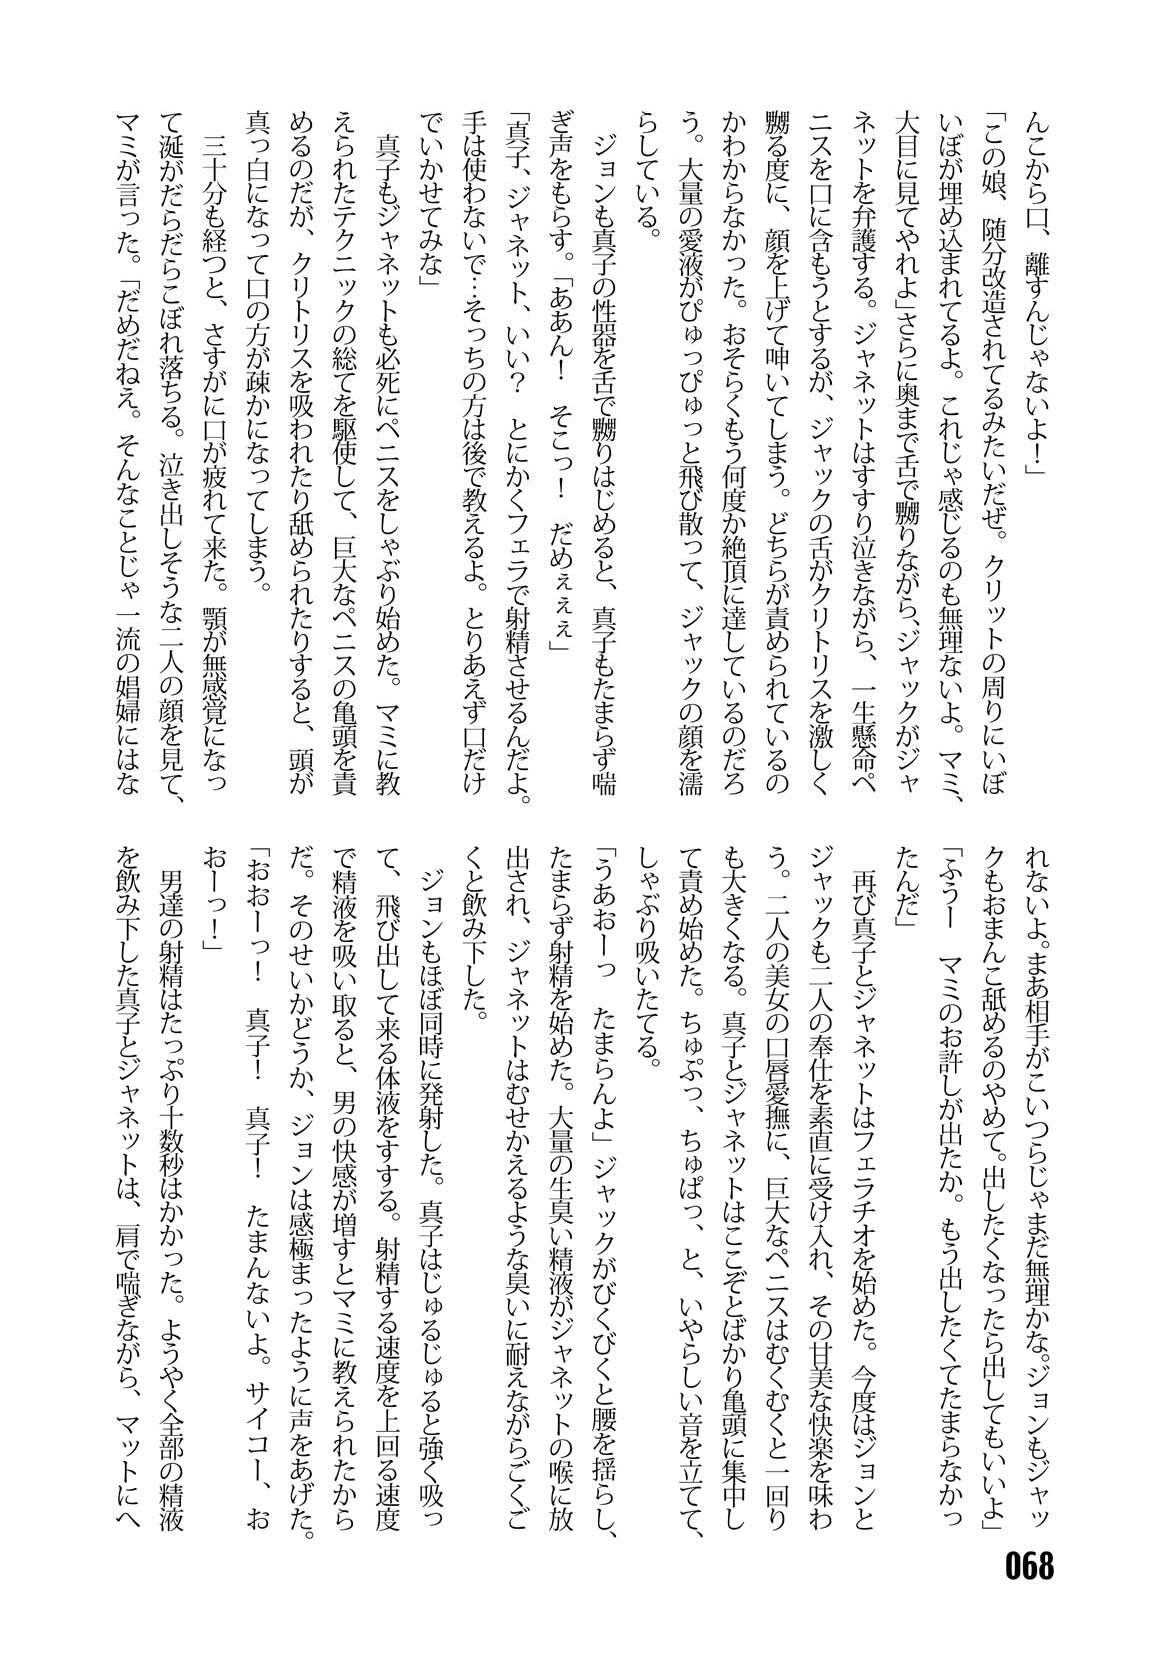 んこから口、離すんじゃないよ！」
「この娘、随分改造されてるみたいだぜ。クリットの周りにいぼ
いぼが埋め込まれてるよ。これじゃ感じるのも無理ないよ。マミ、
大目に見てやれよ」さらに奥まで舌で嬲りながら、ジャックがジャ
ネットを弁護する。ジャネットはすすり泣きながら、一生懸命ペ
ニスを口に含もうとするが、ジャックの舌がクリトリスを激しく
嬲る度に、顔を上げて呻いてしまう。どちらが責められているの
かわからなかった。おそらくもう何度か絶頂に達しているのだろ
う。大量の愛液がぴゅっぴゅっと飛び散って、ジャックの顔を濡
らしている。
ジョンも真子の性器を舌で嬲りはじめると、真子もたまらず喘
ぎ声をもらす。「ああん！　そこっ！　だめぇぇぇ」
「真子、ジャネット、いい？　とにかくフェラで射精させるんだよ。
手は使わないで…そっちの方は後で教えるよ。とりあえず口だけ
でいかせてみな」
真子もジャネットも必死にペニスをしゃぶり始めた。マミに教
えられたテクニックの総てを駆使して、巨大なペニスの亀頭を責
めるのだが、クリトリスを吸われたり舐められたりすると、頭が
真っ白になって口の方が疎かになってしまう。
三十分も経つと、さすがに口が疲れて来た。顎が無感覚になっ
て涎がだらだらこぼれ落ちる。泣き出しそうな二人の顔を見て、
マミが言った。「だめだねえ。そんなことじゃ一流の娼婦にはな
れないよ。まあ相手がこいつらじゃまだ無理かな。ジョンもジャッ
クもおまんこ舐めるのやめて。出したくなったら出してもいいよ」
「ふうー　マミのお許しが出たか。もう出したくてたまらなかっ
たんだ」
再び真子とジャネットはフェラチオを始めた。今度はジョンと
ジャックも二人の奉仕を素直に受け入れ、その甘美な快楽を味わ
う。二人の美女の口唇愛撫に、巨大なペニスはむくむくと一回り
も大きくなる。真子とジャネットはここぞとばかり亀頭に集中し
て責め始めた。ちゅぷっ、ちゅぱっ、と、いやらしい音を立てて、
しゃぶり吸いたてる。
「うあおーっ　たまらんよ」ジャックがびくびくと腰を揺らし、
たまらず射精を始めた。大量の生臭い精液がジャネットの喉に放
出され、ジャネットはむせかえるような臭いに耐えながらごくご
くと飲み下した。
ジョンもほぼ同時に発射した。真子はじゅるじゅると強く吸っ
て、飛び出して来る体液をすする。射精する速度を上回る速度
で精液を吸い取ると、男の快感が増すとマミに教えられたから
だ。そのせいかどうか、ジョンは感極まったように声をあげた。
「おおーっ！　真子！　真子！　たまんないよ。サイコー、お
おーっ！」
男達の射精はたっぷり十数秒はかかった。ようやく全部の精液
を飲み下した真子とジャネットは、肩で喘ぎながら、マットにへ
068